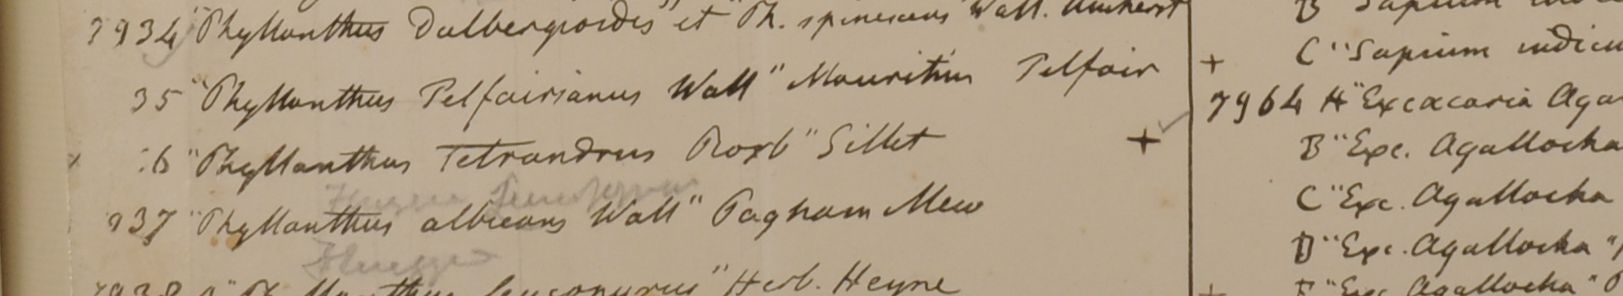 7934 "Phyllanthus Dalbergioides" et "Ph. spinescens Wall. Amherst
35 "Phyllanthus Telfairianus Wall" Mauritius Telfair
36 "Phyllanthus Tetrandrus Roxb" Sillet +
Fluggea
937 "Phyllanthus albicans Wall" Pagham Mew
Fluggea
7938 "Phyllanthus leucopyrus" Herb. Heyne
B "Sapium
+ C "Sapium indicu
7964 A "Excacaria Aga
B "Exc. Agallocha
C "Exc. Agallocha
D "Exc. Agallocha "
+ E "Exc Agallocha"